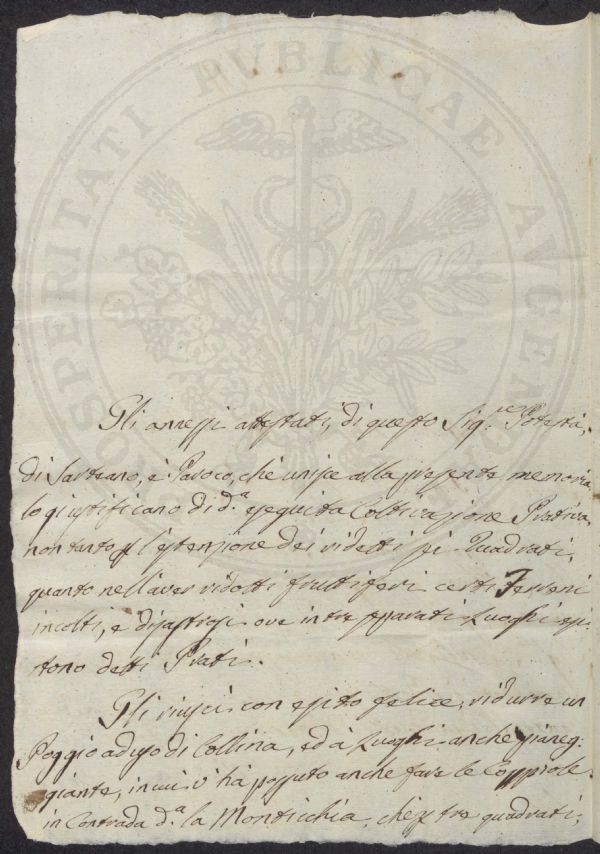 PROSPERITATI PVBLICAE AVGENDAE
Gli annessi attestati, di questo Sig.re Potestà,
di Sarteano, e Paroco, che unisce alla presente memoria
lo giustificano di d.a eseguita Coltivazione Prativa
non tanto p l'estenzione dei ridetti sei Quadrati,
quanto nell'aver ridotti fruttiferi certi Terreni
incolti, e disastrosi ove in tre separati Luoghi esi=
tono detti Prati.
Gli riuscì con esito felice, ridurre un
Poggio ad uso di Collina, ed à Luoghi anche pianeg=
giante, in cui v'hà possuto anche fare le
in Contrada d.a la Monticchia, che p tre quadrati,